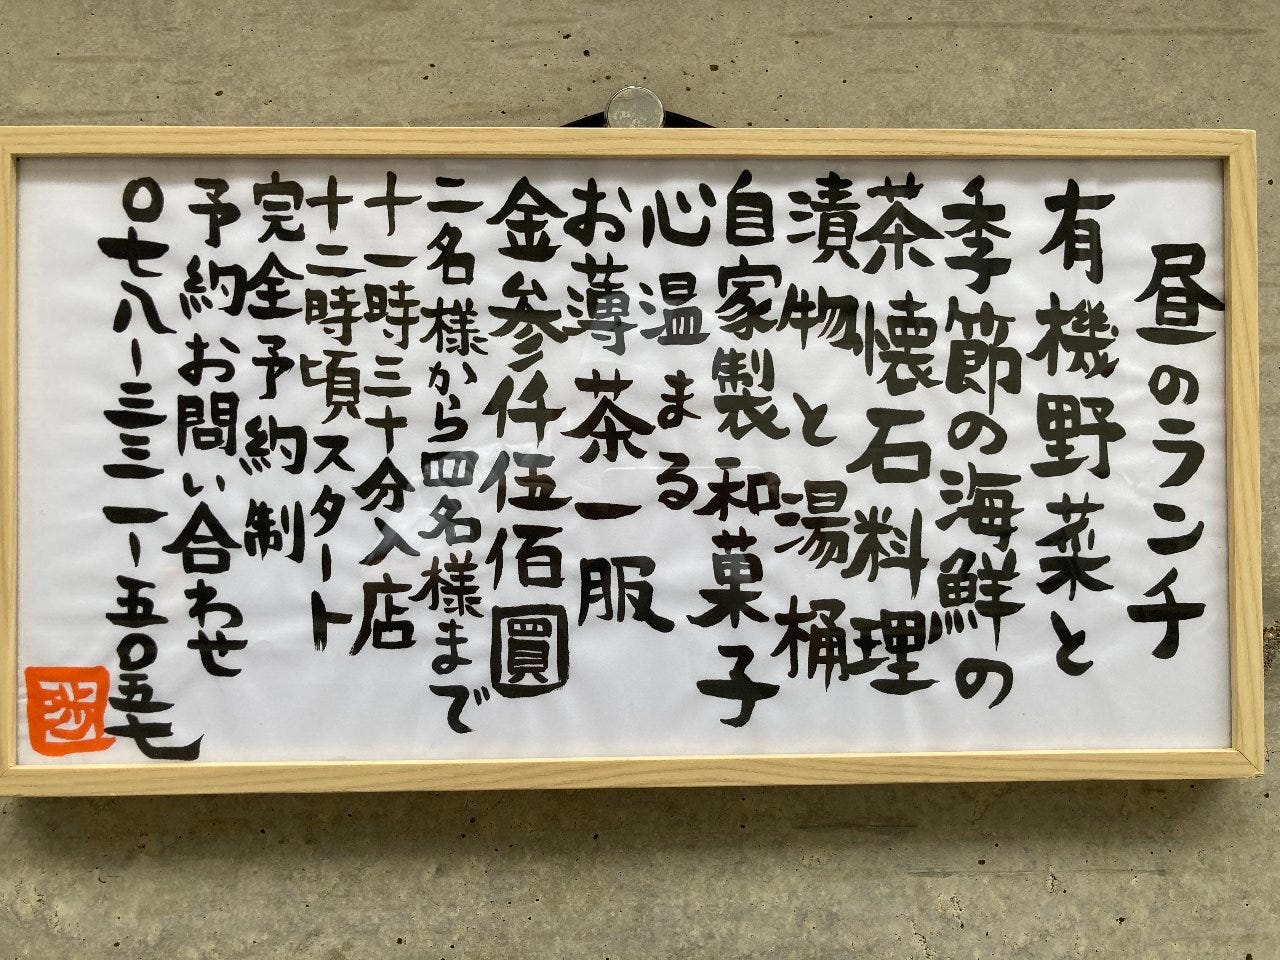 昼のランチ
有機野菜と
季節の海鮮の
茶懐石料理
漬物と湯桶
自家製和菓子
心温まる
お薄茶一服
金参仟伍佰圓
二名様から四名様まで
十一時三十分入店
十二時頃スタート
完全予約制
予約お問い合わせ
〇七八-三三一-五〇五七